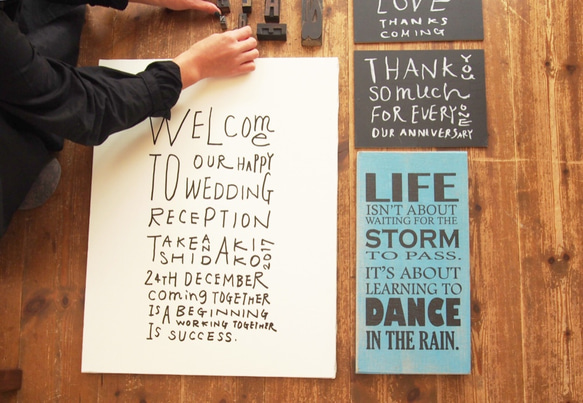 WELCOME
TO OUR HAPPY
WEDDING
RECEPTION
TAKESHI AND AKIKO 2017
24TH DECEMBER
coming TOGETHER
IS A BEGINNING
WORKING TOGETHER
IS SUCCESS.
LOVE
THANKS
COMING
THANK YOU
so much
FOR EVERYONE
OUR ANNIVERSARY
LIFE
ISN'T ABOUT
WAITING FOR THE
STORM
TO PASS.
IT'S ABOUT
LEARNING TO
DANCE
IN THE RAIN.